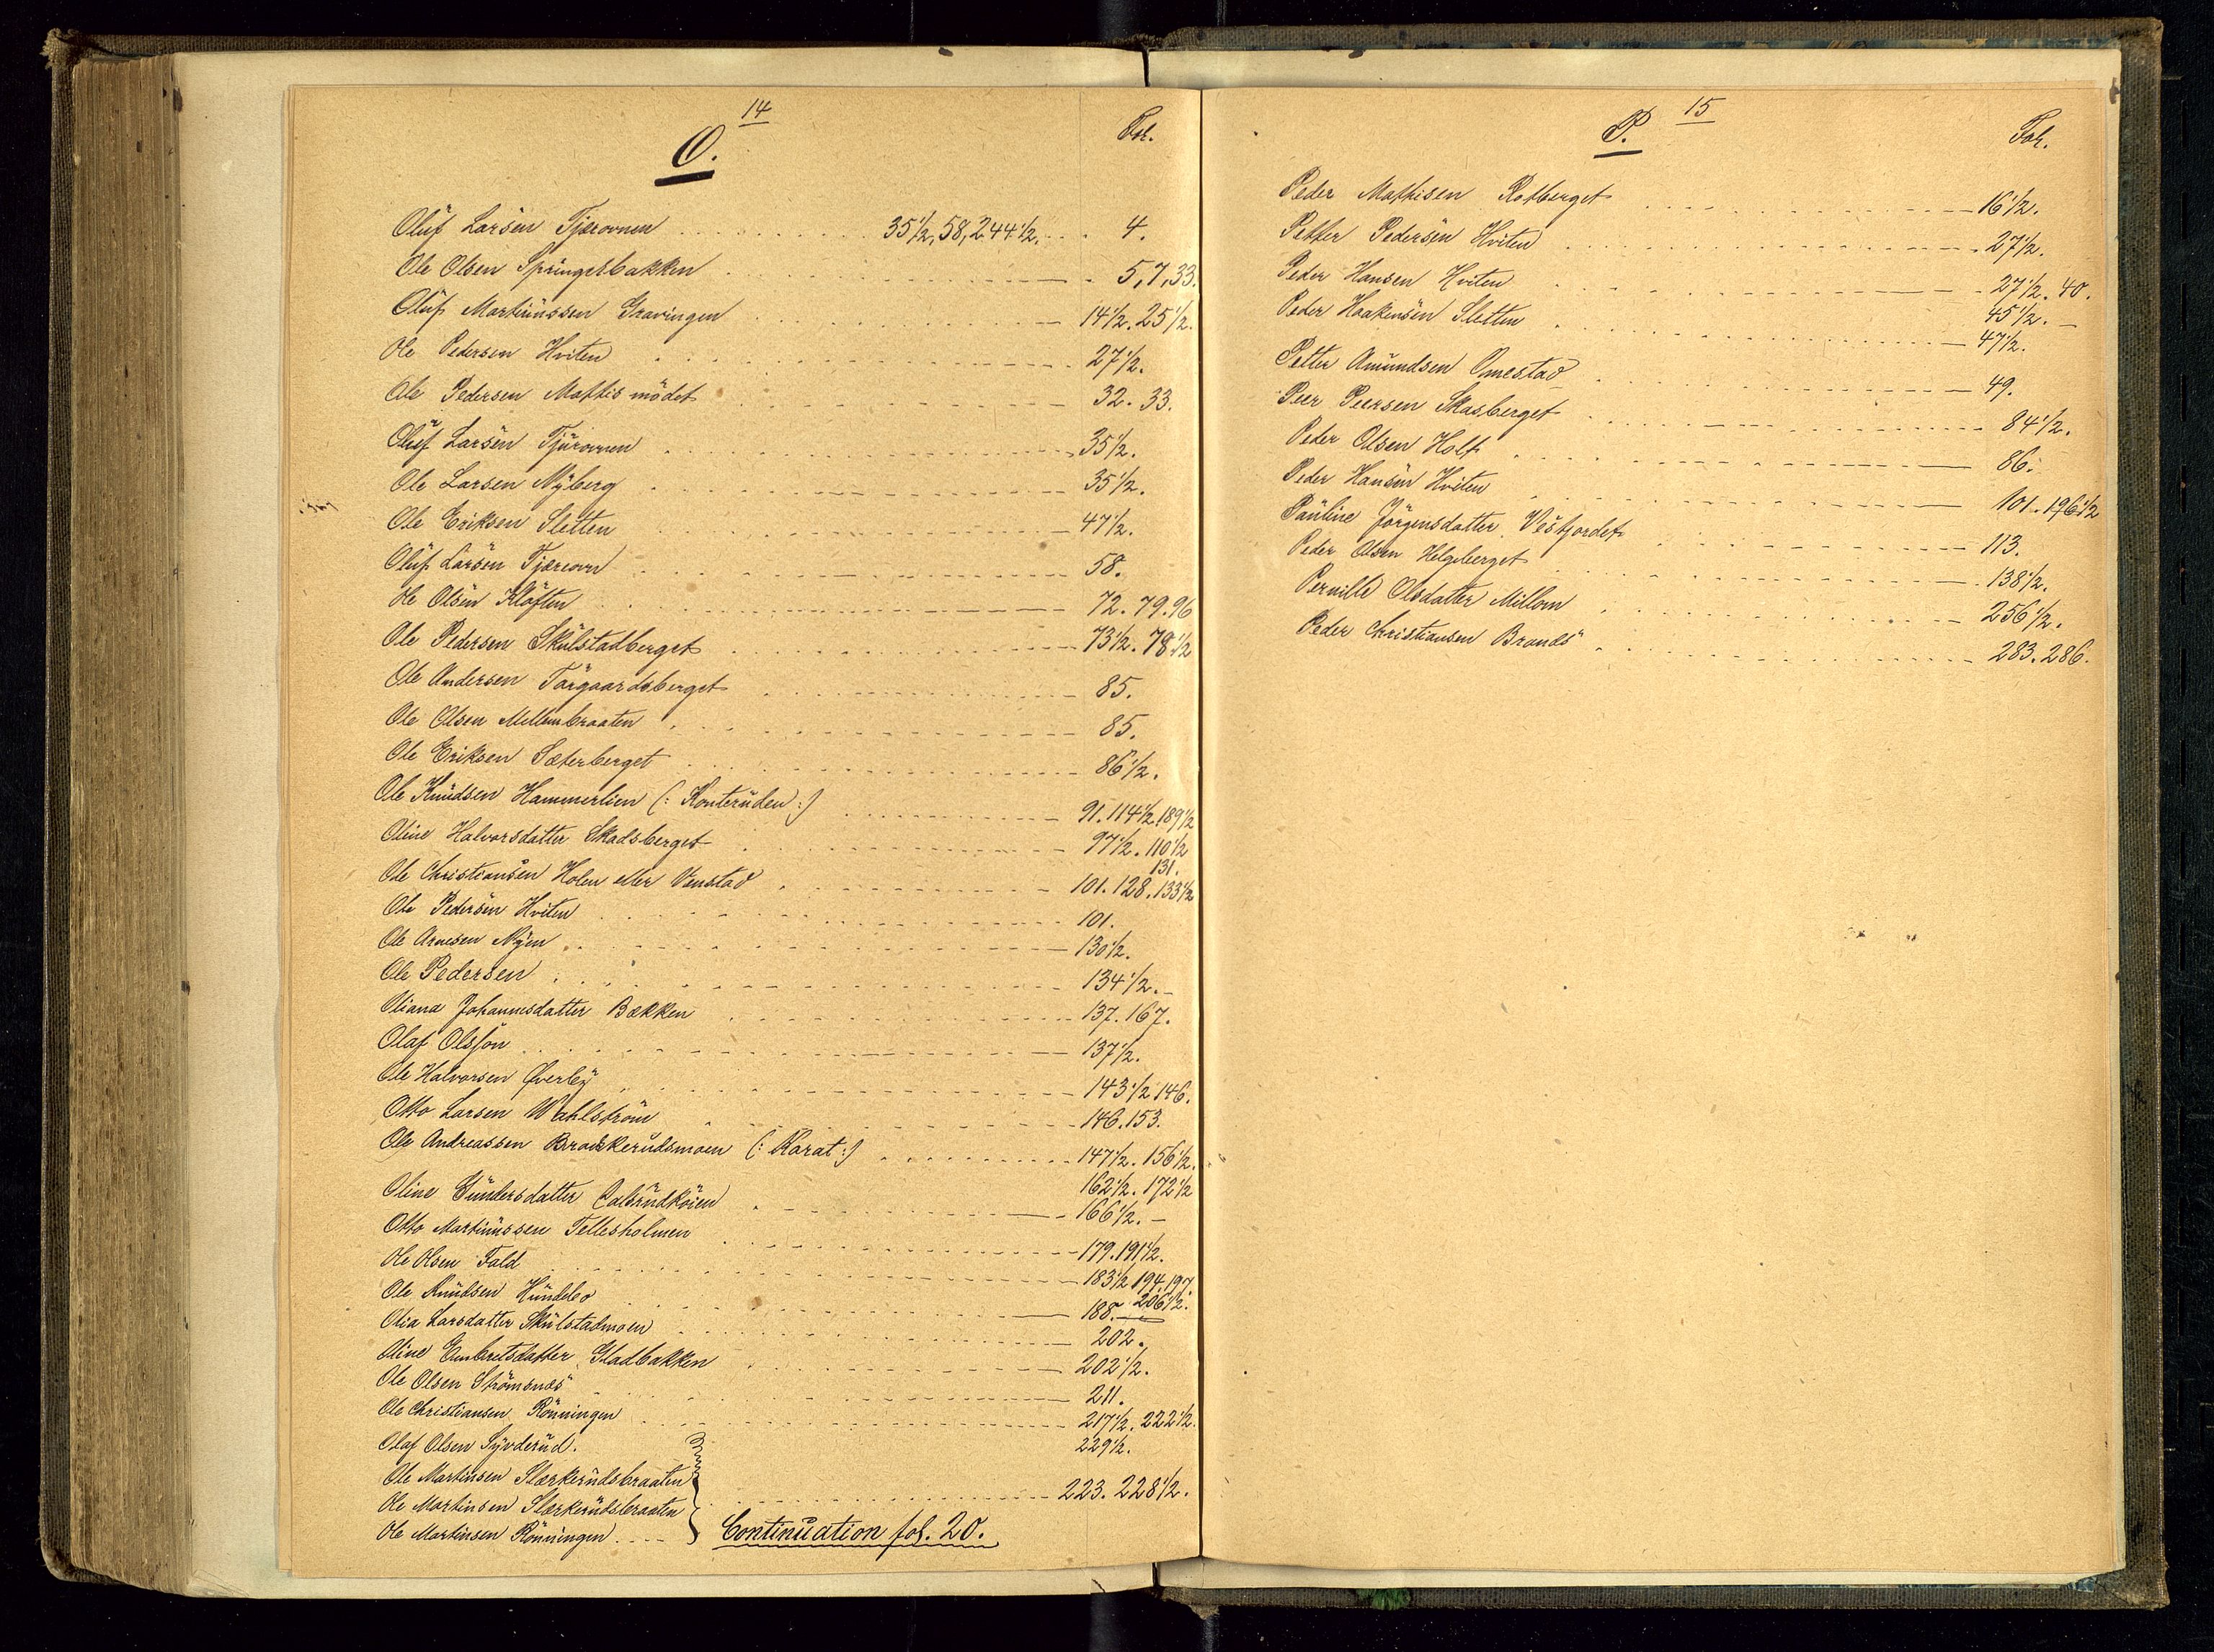 14
O.
Fol.
Oluf Larsen Tjærovnen 35 1/2, 58, 244 1/2. 4.
Ole Olsen Springetbakken 5, 7, 33.
Oluf Martinussen Gravingen 14 1/2. 25 1/2.
Ole Pedersen Hviten 27 1/2.
Ole Pedersen Mattismödet 32. 33.
Oluf Larsen Tjürovnen 35 1/2.
Ole Larsen Nyberg 35 1/2.
Ole Eriksen Sletten 47 1/2.
Oluf Larsen Tjæreovn 58.
Ole Olsen Kløften 72. 79. 96
Ole Pedersen Skulstadberget 73 1/2. 78 1/2
Ole Andersen Torgaardsberget 85.
Ole Olsen Mellembraaten 85.
Ole Eriksen Sæterberget 86 1/2.
Ole Knudsen Hammerlien (: Konteruden :) 91. 114 1/2. 189 1/2
Oline Halvorsdatter Skadsberget 97 1/2. 110 1/2
131.
Ole Christiansen Holen eller Venstad 101. 128. 133 1/2
Ole Pedersen Hviten 101.
Ole Arnesen Nyen 130 1/2.
Ole Pedersen 134 1/2.
Oliana Johannesdatter Bækken 137. 167.
Olaf Olsson 137 1/2.
Ole Halvorsen Øverby 143 1/2 146.
Otto Larsen Wahlström 146. 153.
Ole Andreassen Braskerudsmoen (: Korat :) 147 1/2. 156 1/2.
162 1/2. 172 1/2
Oline Gundersdatter 166 1/2.
Otto Martinussen Tellesholmen 179. 191 1/2.
Ole Olsen Fald 183 1/2 194. 197.
206 1/2.
Ole Knudsen 188.
Olia Larsdatter Skulstadmoen 202.
Oline Embretsdatter Gladbakken 202 1/2.
Ole Olsen Strömsnes 211.
Ole Christiansen Rönningen 217 1/2. 222 1/2.
Olaf Olsen Syvderud. 229 1/2.
Ole Martinsen Slærkerudsbraaten
Ole Martinsen Slærkerudsbraaten 223. 228 1/2.
Ole Martinsen Rönningen
Continuation fol. 20.
15
P.
Fol.
Peder Mathisen Rotberget 16 1/2.
Petter Pedersen Hviten 27 1/2.
Peder Hansen Hviten 27 1/2. 40.
45 1/2.
Peder Haakensen Sletten 47 1/2.
Petter Amundsen Omestad 49.
Peer Peersen Skasberget 84 1/2.
Peder Olsen Holt 86.
Peder Hansen Hviten 101. 196 1/2
Pauline Jörgensdatter Vestjordet 113.
Peder Olsen Helgeberget 138 1/2.
Pernille Olsdatter Millom 256 1/2.
Peder Christiansen Brands 283. 286.